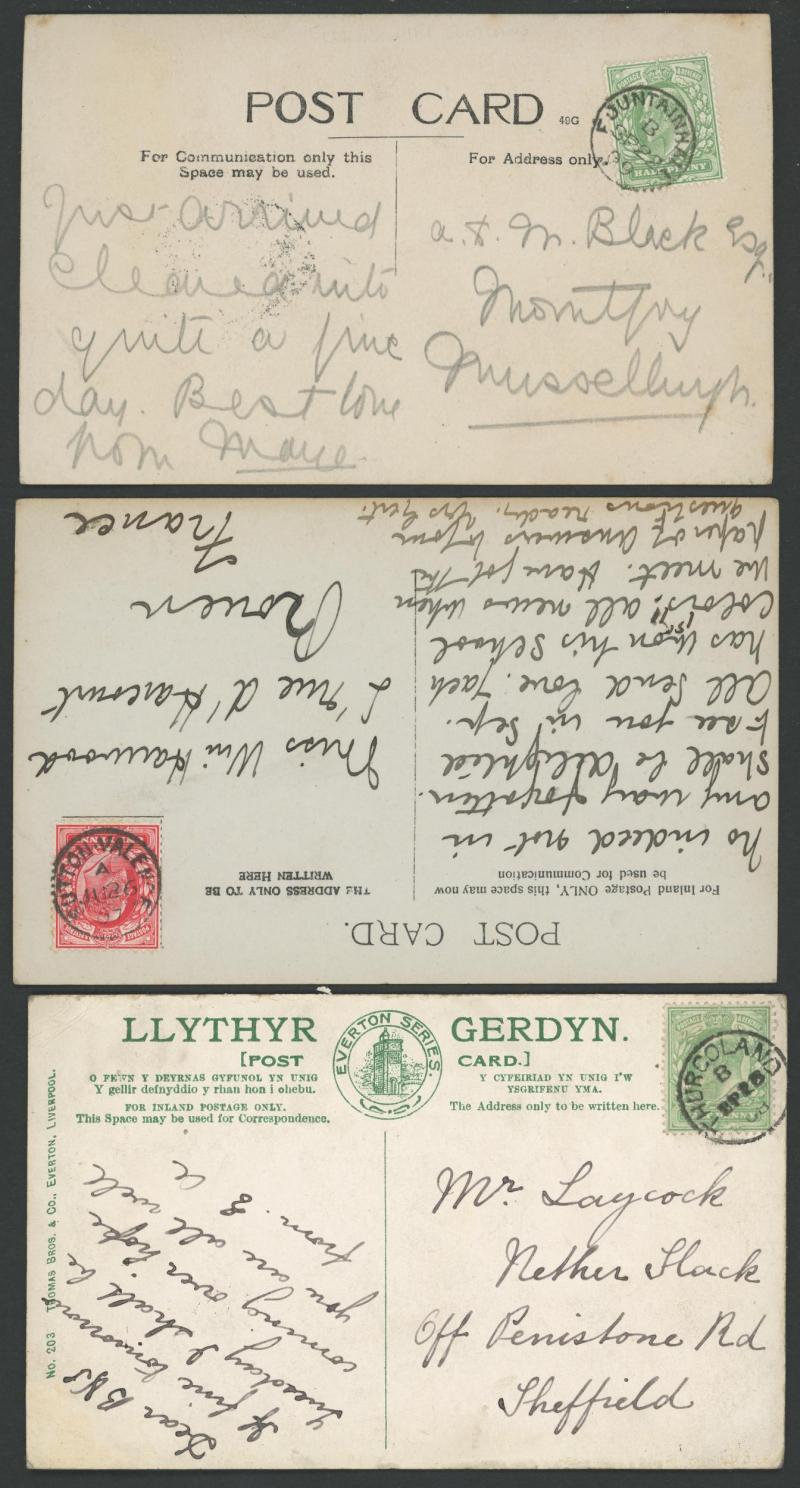 POST CARD
49G
For Communication only this
Space may be used.
For Address only.
HALFPENNY
B
SP 22
Just arrived
Cleared into
quite a fine
day. Best love
from Maye.
a. & M. Black Esq.
Mountjoy
Musselburgh.
POST CARD.
For Inland Postage ONLY, this space may now
be used for Communication
THE ADDRESS ONLY TO BE
WRITTEN HERE
SUTTON-VALENCE
A
AU 26
No indeed not in
any way forgotten.
Shall be delighted
to see you in Sep.
All send love. Jack
has won his School
"1st 11"
Colors; all news when
we meet. Have got the
paper of answers
questions ready.
Miss Harwood
L'rue d'Harcourt
Rouen
France
LLYTHYR GERDYN.
[POST CARD.]
EVERTON SERIES.
O FEWN Y DEYRNAS GYFUNOL YN UNIG
Y gellir defnyddio y rhan hon i ohebu.
FOR INLAND POSTAGE ONLY.
This Space may be used for Correspondence.
Y CYFEIRIAD YN UNIG I'W
YSGRIFENU YMA.
The Address only to be written here.
THURGOLAND
B
SP 28
No. 203 THOMAS BROS. & CO., EVERTON, LIVERPOOL.
Dear
If fine tomorrow
Tuesday I shall be
coming over hope
you are all well
from
Mr. Laycock
Nether Slack
Off Penistone Rd
Sheffield